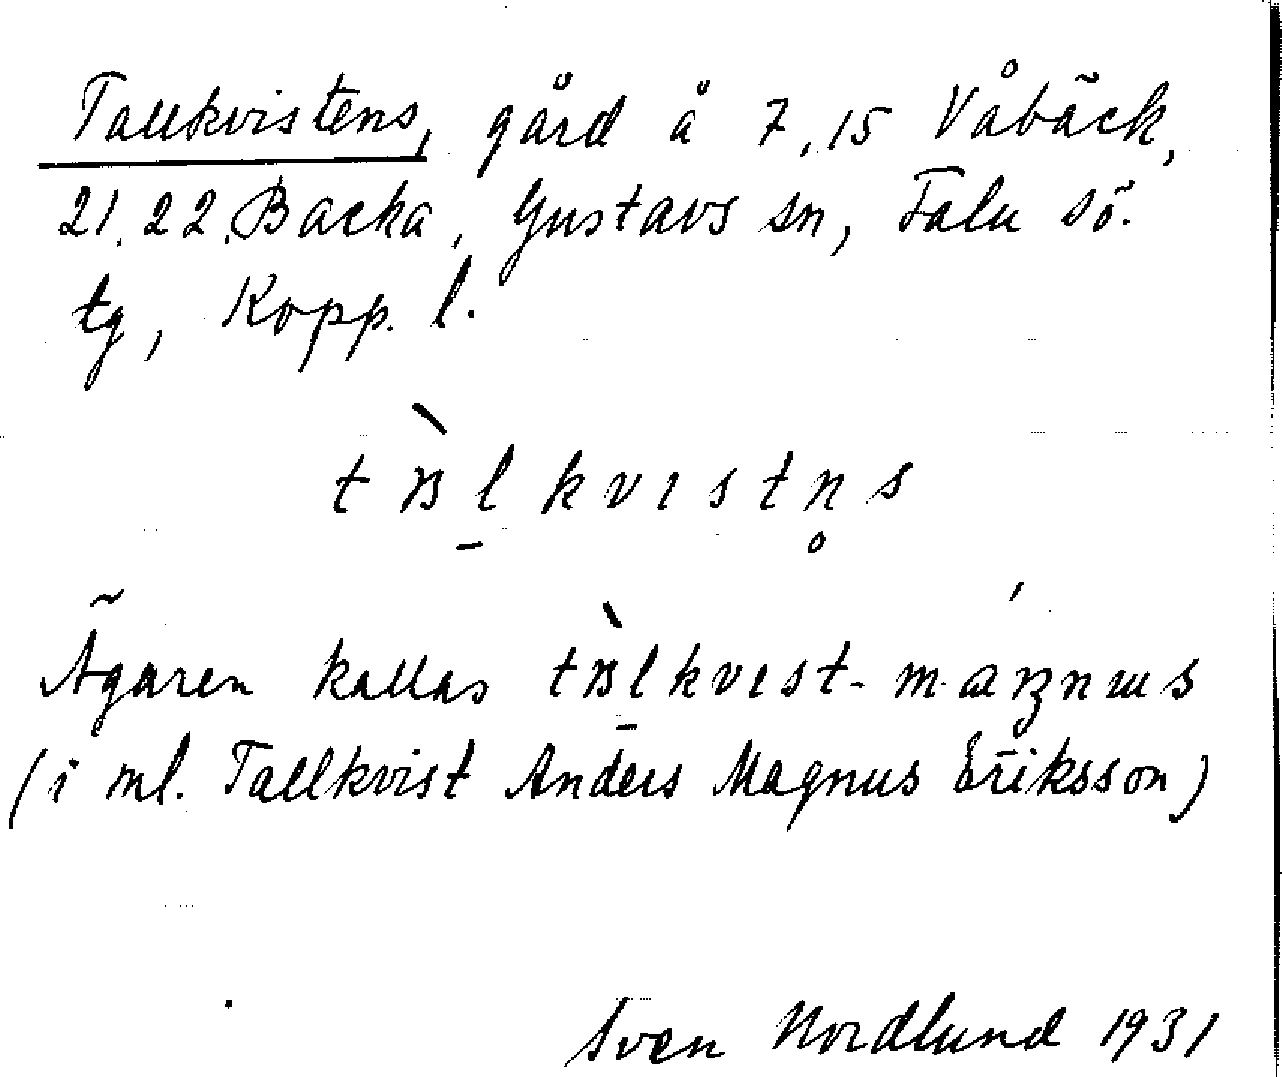 Tallkvistens, gård å 7, 15 Våbäck,
21, 22, Backa, Gustavs sn, Falu sö.
tg, Kopp. l.
Ägaren kallas
(i ml. Tallkvist Anders Magnus Eriksson)
Sven Nordlund 1931